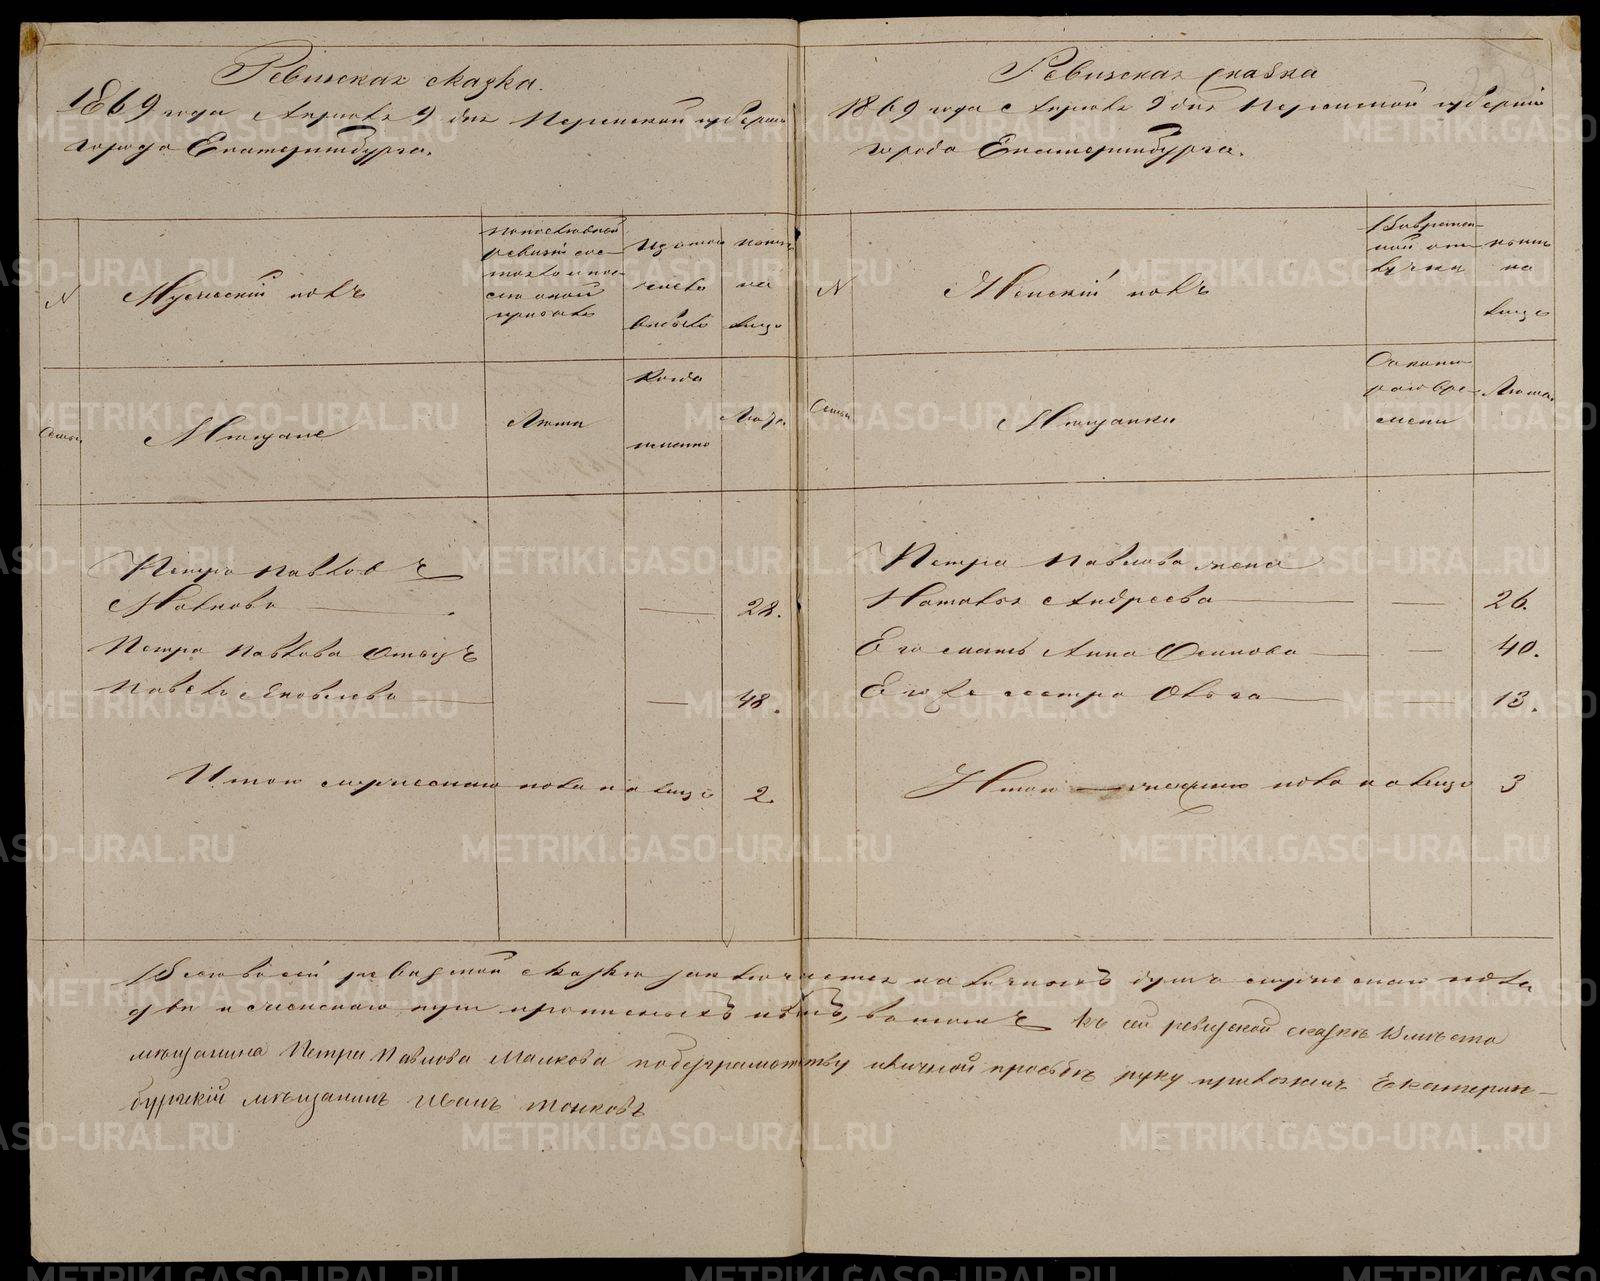 Ревизская сказка.
1869 года Апреля 9 дня Пермской губернии
города Екатеринбурга.
N
Мужеский полъ
По последней ревизіи состояло и после оной прибыло
Изъ того числа выбыло
Ныне на лицо
Семьи
Мещане
Лета
Когда именно
Лета
Петръ Павловъ
Малковъ 28.
Петра Павлова Отецъ
Павелъ Яковлевъ 48.
Итого мужескаго пола на лицо 2
Ревизская сказка
1869 года Апреля 9 дня Пермской губерніи
города Екатеринбурга.
N
Женскій полъ
Во временной отлучки
Ныне на лицо
Семьи
Мещанки
Съ какого времени
Лета
Петра Павлова жена
Наталья Андреева 26.
Его мать Анна Осипова 40.
Его же сестра Ольга 13.
Итого женскаго пола на лицо 3
Всего въ сей ревизской сказке заключается на личныхъ душъ мужескаго пола
две и женскаго три прописныхъ нетъ, въ томъ къ сей ревизской сказке вместо
мещанина Петра Павлова Малкова по безграмотству и личной просьбе руку приложилъ Екатерин-
бургскій мещанинъ Иванъ
METRIKI.GASO-URAL.RU